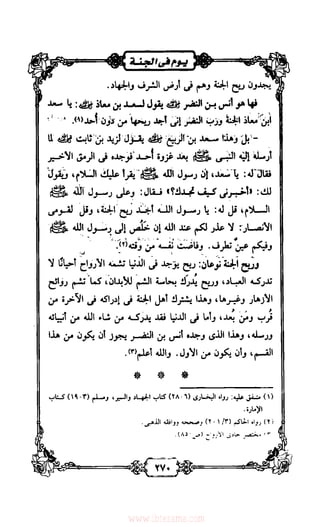 يوم فى الجنة
يجدون ريح الجنة وهم فى أرض الشرف والجهاد.
فها هو أنس بن النضر ﷺ يقول لسعد بن معاذ ﷺ: يا سعد
ابن معاذ الجنة ورب النضر إنى أجد ريحها من دون أحد(١).
-بل وهذا سعد بن الربيع ﷺ يقول لزيد بن ثابت ﷺ لما
أرسله إليه النبى ﷺ بعد غزوة أحد فوجده فى الرمق الأخير
فقال له: يا سعد، إن رسول الله ﷺ يقرأ عليك السلام، ويقول
لك: «أخبرنى كيف تجدك؟» فقال: وعلى رسول الله ﷺ
السلام، قل له: يا رسول الله أجد ريح الجنة، وقل لقومى
الأنصار: لا عذر لكم عند الله إن خلص إلى رسول الله ﷺ
وفيكم عين تطرف. وفاضت نفسه من وقته(٢).
وريح الجنة نوعان: ريح يوجد فى الدنيا تشمه الأرواح أحيانًا لا
تدركه العباد، وريح يدرك بحاسة الشم للأبدان، كما تشم روائح
الأزهار وغيرها، وهذا يشترك أهل الجنة فى إدراكه فى الآخرة من
قرب ومن بعد، وأما فى الدنيا فقد يدركه من شاء الله من أنبيائه
ورسله، وهذا الذى وجده أنس بن النضر يجوز أن يكون من هذا
القسم، وأن يكون من الأول. والله أعلم(٣).
* * *
(١) متفق عليه: رواه البخارى (٢٨٠٦) كتاب الجهاد والسير، ومسلم (١٩٠٣) كتاب
الإمارة.
(٢) رواه الحاكم (٢٠١/٣) وصححه ووافقه الذهبى.
(٣) مختصر حادى الأرواح (ص ٨٥).
٢٧٠